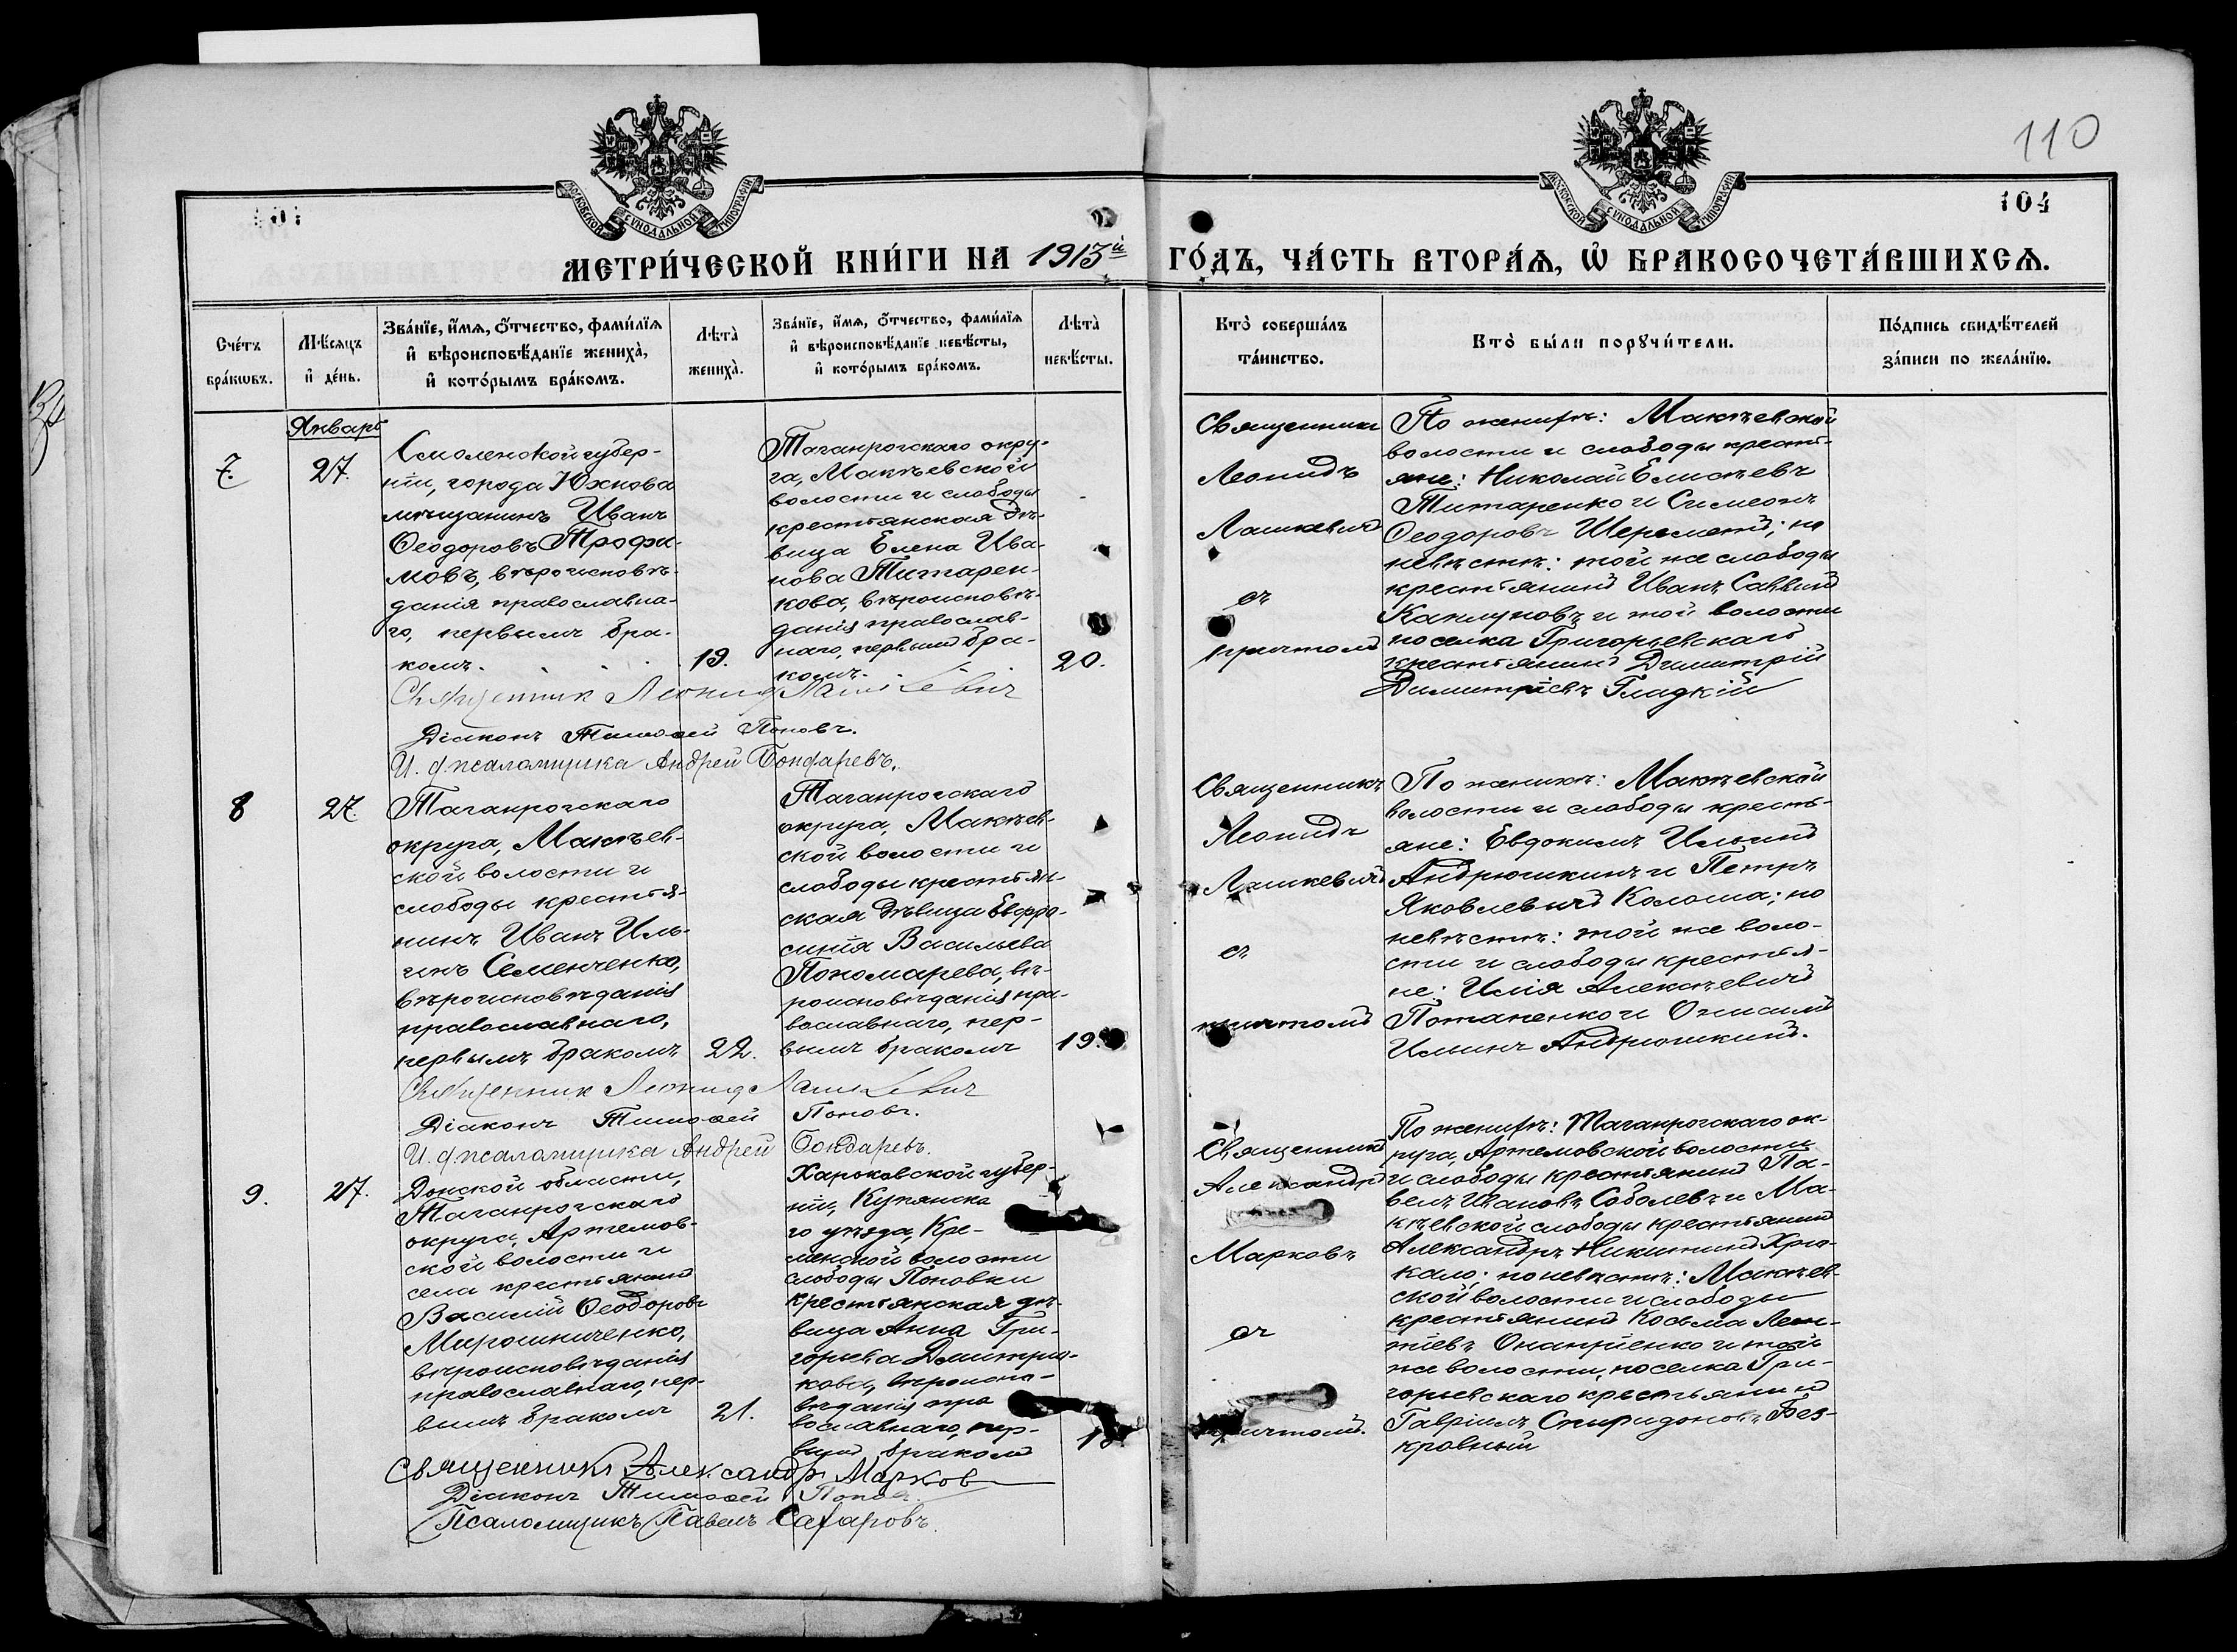 110
104
МОСКОВСКОЙ СѴНОДАЛЬНОЙ ТИПОГРАФІИ
МОСКОВСКОЙ СѴНОДАЛЬНОЙ ТИПОГРАФІИ
МЕТРИ́ЧЕСКОЙ КНИ́ГИ НА 1913й ГО́ДЪ, ЧА́СТЬ ВТОРА́Ѧ, Ѡ҆ БРАКОСОЧЕТА́ВШИХСѦ.
Сче́тъ
бра́кѡвъ.
Мѣ́сѧцъ
и҆ де́нь.
Зва́нїе, и҆́мѧ, ѻ҆́тчество, фами́лїѧ
и҆ вѣроисповѣ́данїе жениха̀,
и҆ кото́рымъ бра́комъ.
Лѣта̀
жениха̀.
Зва́нїе, и҆́мѧ, ѻ҆́тчество, фами́лїѧ
и҆ вѣроисповѣ́данїе невѣ́сты,
и҆ кото́рымъ бра́комъ.
Лѣта̀
невѣ́сты.
Кто̀ соверша́лъ
та́инство.
Кто̀ бы́ли порꙋчи́тели.
По́дпись свидѣ́телей
за́писи по жела́нїю.
Январь
7.
27.
Смоленской губер-
ніи, города Юхнова
мѣщанинъ Иванъ
Ѳеодоровъ Трофи-
мовъ, вѣроисповѣ-
данія православна-
го, первымъ бра-
комъ.
19.
Таганрогскаго окру-
га, Макѣевской
волости и слободы
крестьянская дѣ-
вица Елена Ива-
нова Титарен-
кова, вѣроисповѣ-
данія православ-
наго, первымъ бра-
комъ.
20.
Священникъ
Леонидъ
Лашкевичъ
съ
причтомъ
По женихѣ: Макѣевской
волости и слободы кресть-
яне: Николай Елисѣевъ
Титаренко и Симеонъ
Ѳеодоровъ Шереметъ; по
невѣстѣ: той же слободы
крестьянинъ Иванъ Саввинъ
Каплуновъ и той волости
поселка Григорьевскаго
крестьянинъ Димитрій
Димитріевъ Гладкій
Священник Леонид Лашкевич
Діаконъ Тимоѳей Поповъ.
И. д. псаломщика Андрей Бондаревъ.
8
27.
Таганрогскаго
округа, Макѣев-
ской волости и
слободы крестья-
нинъ Иванъ Иль-
инъ Семенченко,
вѣроисповѣданія
православнаго,
первымъ бракомъ
22.
Таганрогскаго
округа, Макѣев-
ской волости и
слободы крестьян-
ская дѣвица Евфро-
синія Васильева
Пономарева, вѣ-
роисповѣданія пра-
вославнаго, пер-
вымъ бракомъ
19.
Священникъ
Леонидъ
Лашкевичъ
съ
причтомъ
По женихѣ: Макѣевской
волости и слободы кресть-
яне: Евдокимъ Ильинъ
Андрюшкинъ и Петръ
Яковлевичъ Колоша; по
невѣстѣ: той же воло-
сти и слободы крестья-
не: Илія Алексѣевичъ
Потапенко и Онисимъ
Ильинъ Андрюшкинъ.
Священник Леонид Лашкевич
Діаконъ Тимоѳей Поповъ.
И. д. псаломщика Андрей Бондаревъ.
9.
27.
Донской области,
Таганрогскаго
округа, Артемов-
ской волости и
села крестьянинъ
Василій Ѳеодоровъ
Мирошниченко,
вѣроисповѣданія
православнаго, пер-
вымъ бракомъ
21.
Харьковской губер-
ніи, Купянска
го уѣзда, Кре-
менской волости
слободы Поповки
крестьянская дѣ-
вица Анна Гри-
горьева Дмитрю-
кова, вѣроиспо-
вѣданія пра
вославнаго, пер-
вымъ бракомъ
Священникъ
Александръ
Марковъ
съ
причтомъ.
По женихѣ: Таганрогскаго ок-
руга, Артемовской волости
и слободы крестьянинъ Па-
велъ Ивановъ Соболевъ и Ма-
кѣевской слободы крестьянинъ
Александръ Никитинъ Хрю-
кало; по невѣстѣ: Макѣев-
ской волости и слободы
крестьянинъ Косьма Леон-
тіевъ Онапріенко и той
же волости, поселка Гри-
горьевскаго крестьянинъ
Гавріилъ Спиридоновъ Без-
кровный
Священникъ Александръ Марков
Діаконъ Тимоѳей Поповъ.
Псаломщикъ Павелъ Сафаровъ.